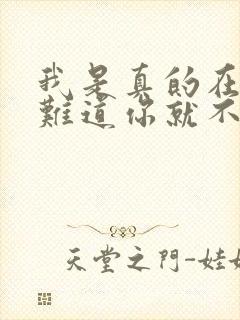 我是真的在
難道你就不
天堂之門-娃娃